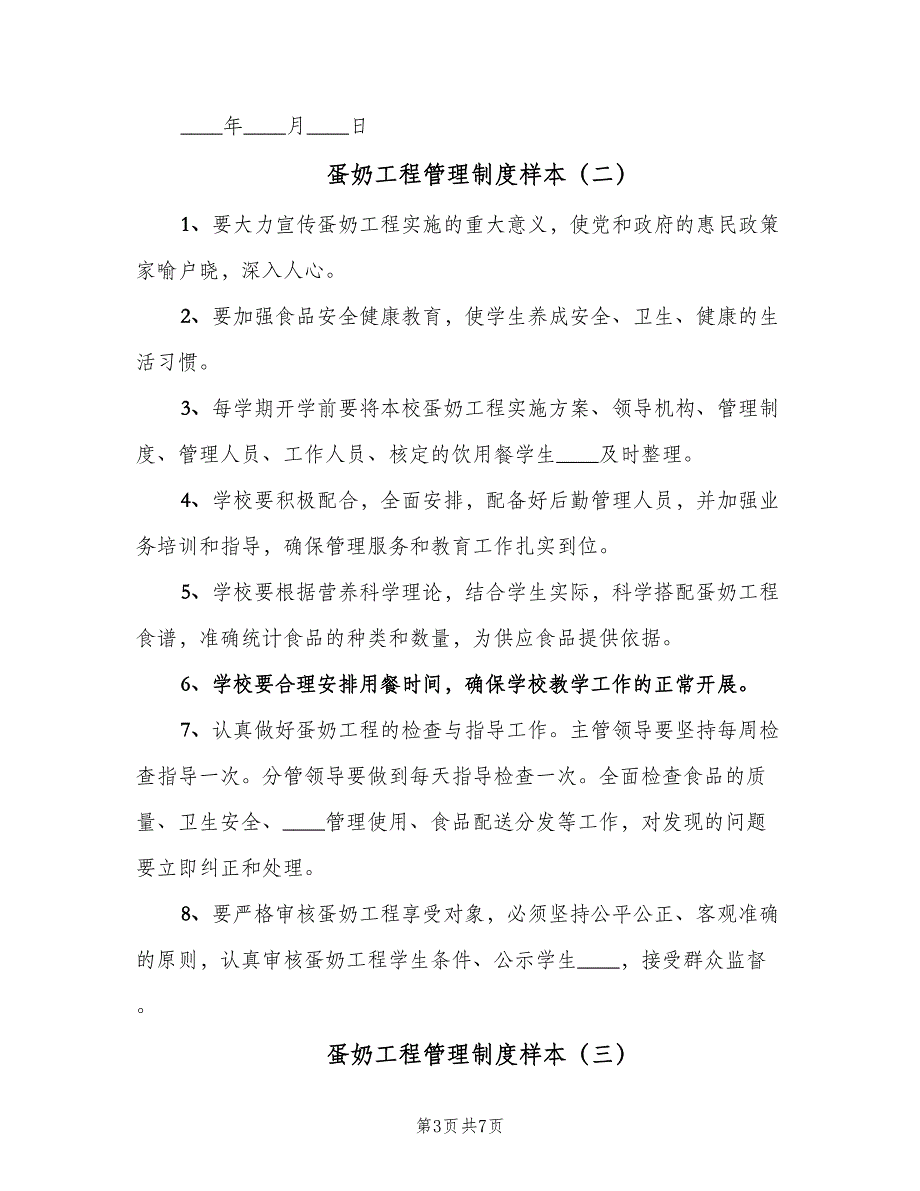 ____年____月____日
蛋奶工程管理制度样本（二）
1、要大力宣传蛋奶工程实施的重大意义，使党和政府的惠民政策
家喻户晓，深入人心。
2、要加强食品安全健康教育，使学生养成安全、卫生、健康的生
活习惯。
3、每学期开学前要将本校蛋奶工程实施方案、领导机构、管理制
度、管理人员、工作人员、核定的饮用餐学生____及时整理。
4、学校要积极配合，全面安排，配备好后勤管理人员，并加强业
务培训和指导，确保管理服务和教育工作扎实到位。
5、学校要根据营养科学理论，结合学生实际，科学搭配蛋奶工程
食谱，准确统计食品的种类和数量，为供应食品提供依据。
6、学校要合理安排用餐时间，确保学校教学工作的正常开展。
7、认真做好蛋奶工程的检查与指导工作。主管领导要坚持每周检
查指导一次。分管领导要做到每天指导检查一次。全面检查食品的质
量、卫生安全、____管理使用、食品配送分发等工作，对发现的问题
要立即纠正和处理。
8、要严格审核蛋奶工程享受对象，必须坚持公平公正、客观准确
的原则，认真审核蛋奶工程学生条件、公示学生____，接受群众监督
。
蛋奶工程管理制度样本（三）
第3页 共7页